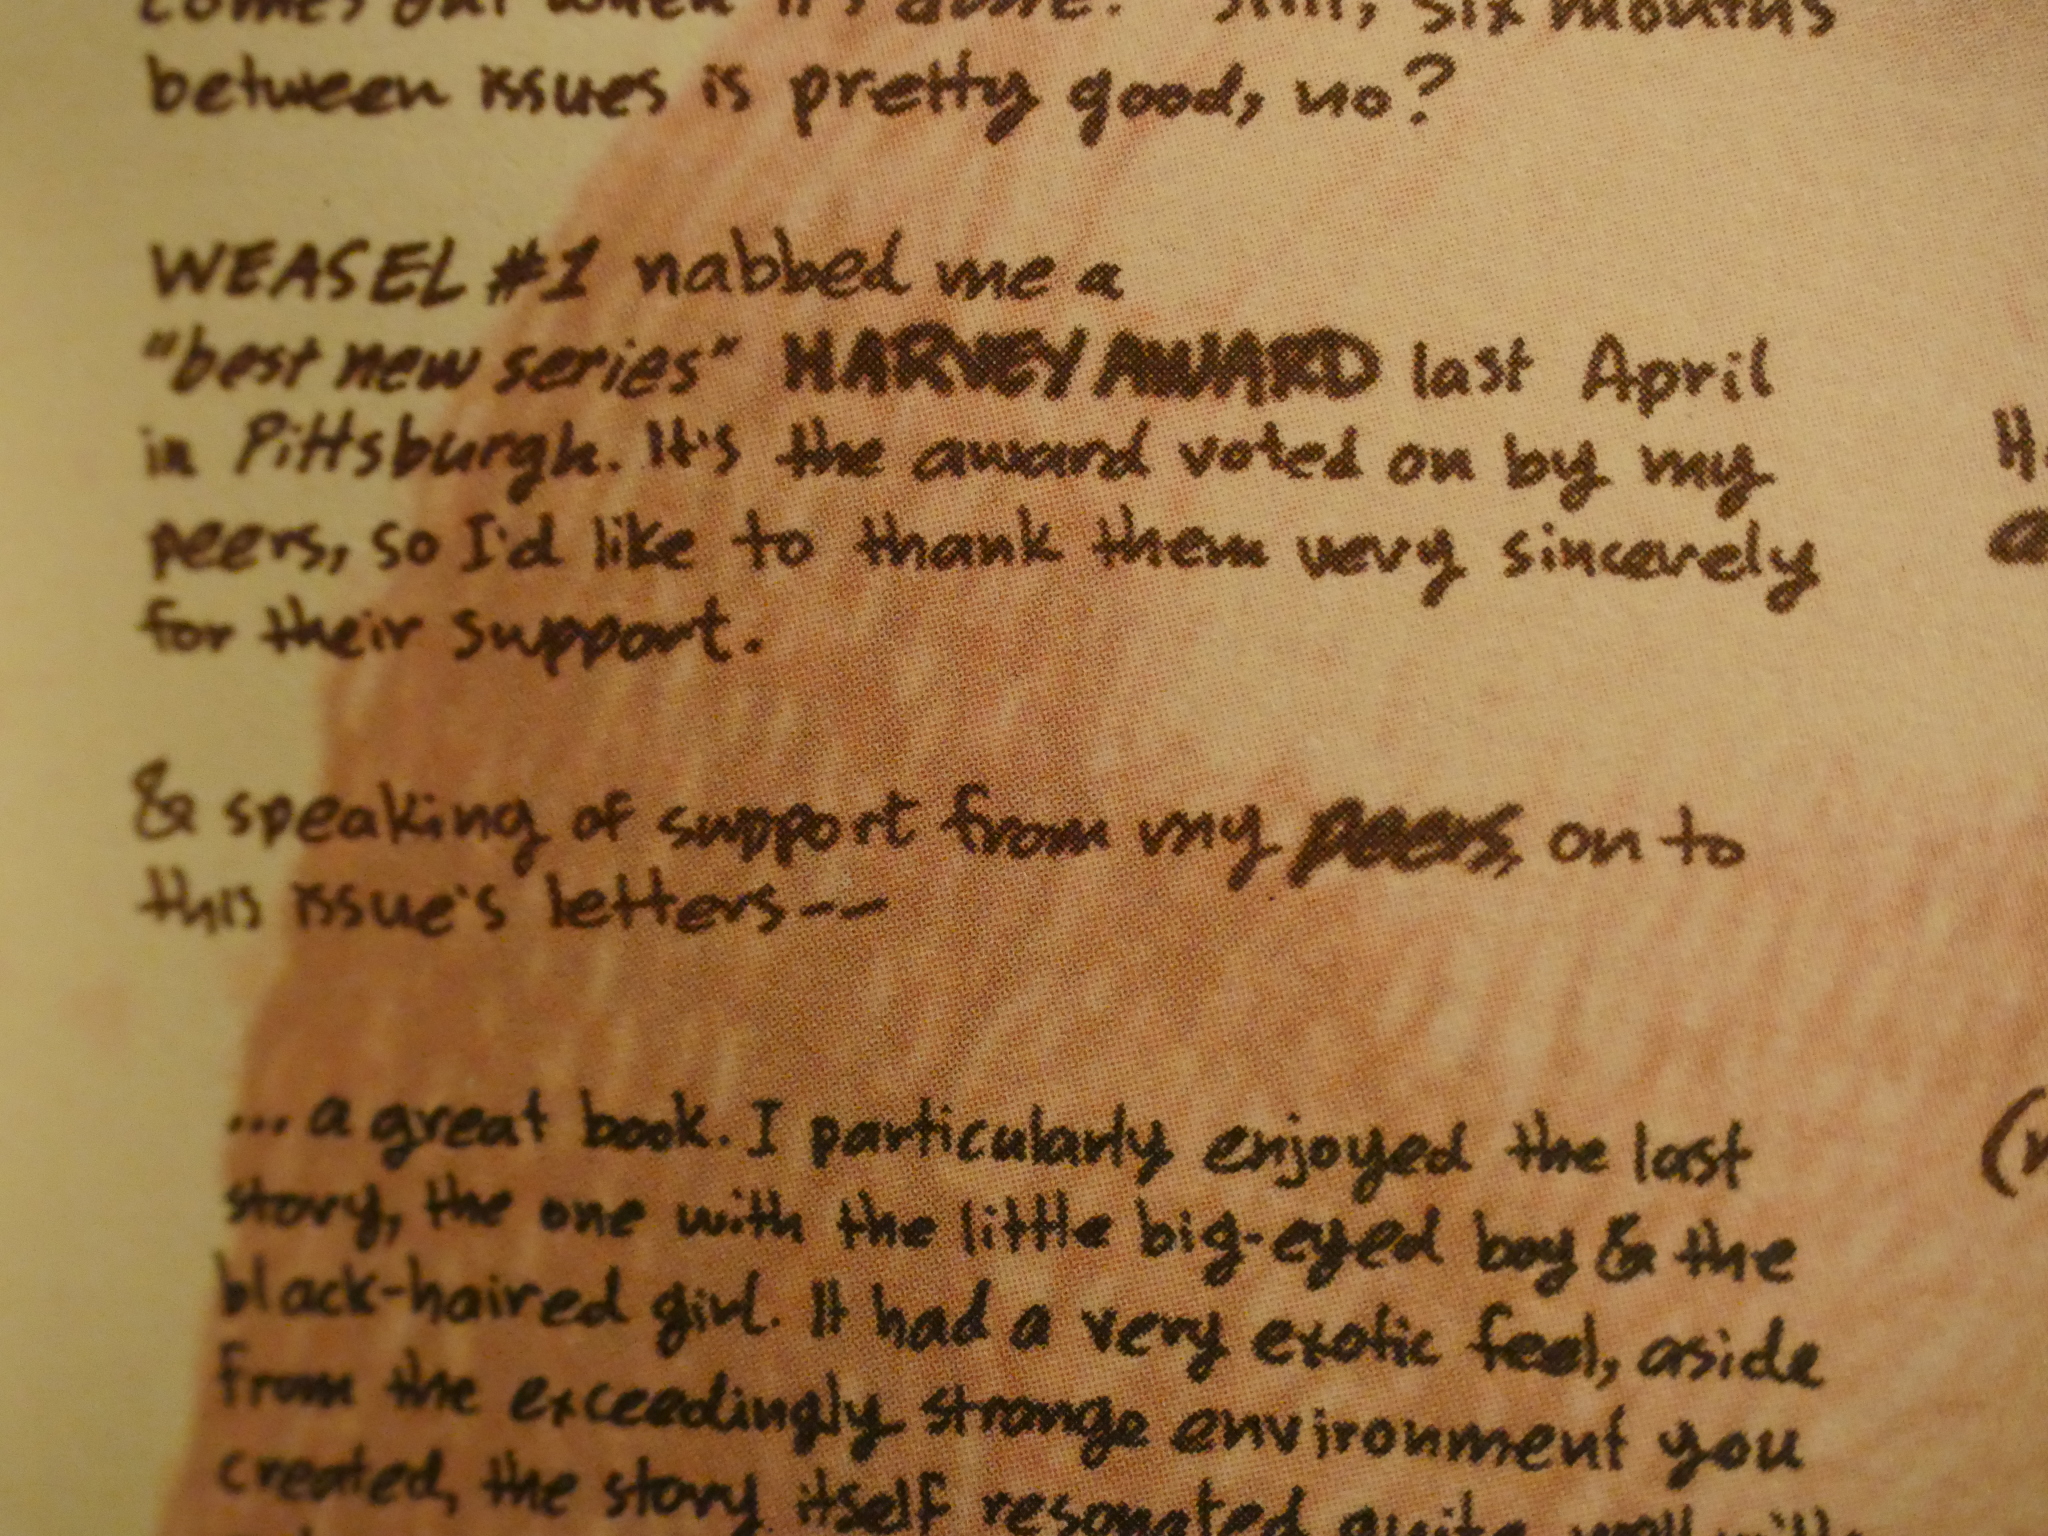 comes out when it's done." Still, six months
between issues is pretty good, no?
WEASEL #1 nabbed me a
"best new series" HARVEY AWARD last April
in Pittsburgh. It's the award voted on by my
peers, so I'd like to thank them very sincerely
for their support.
& speaking of support from my peers, on to
this issue's letters--
... a great book. I particularly enjoyed the last
story, the one with the little big-eyed boy & the
black-haired girl. It had a very exotic feel, aside
from the exceedingly strange environment you
created, the story itself resonated quite well with